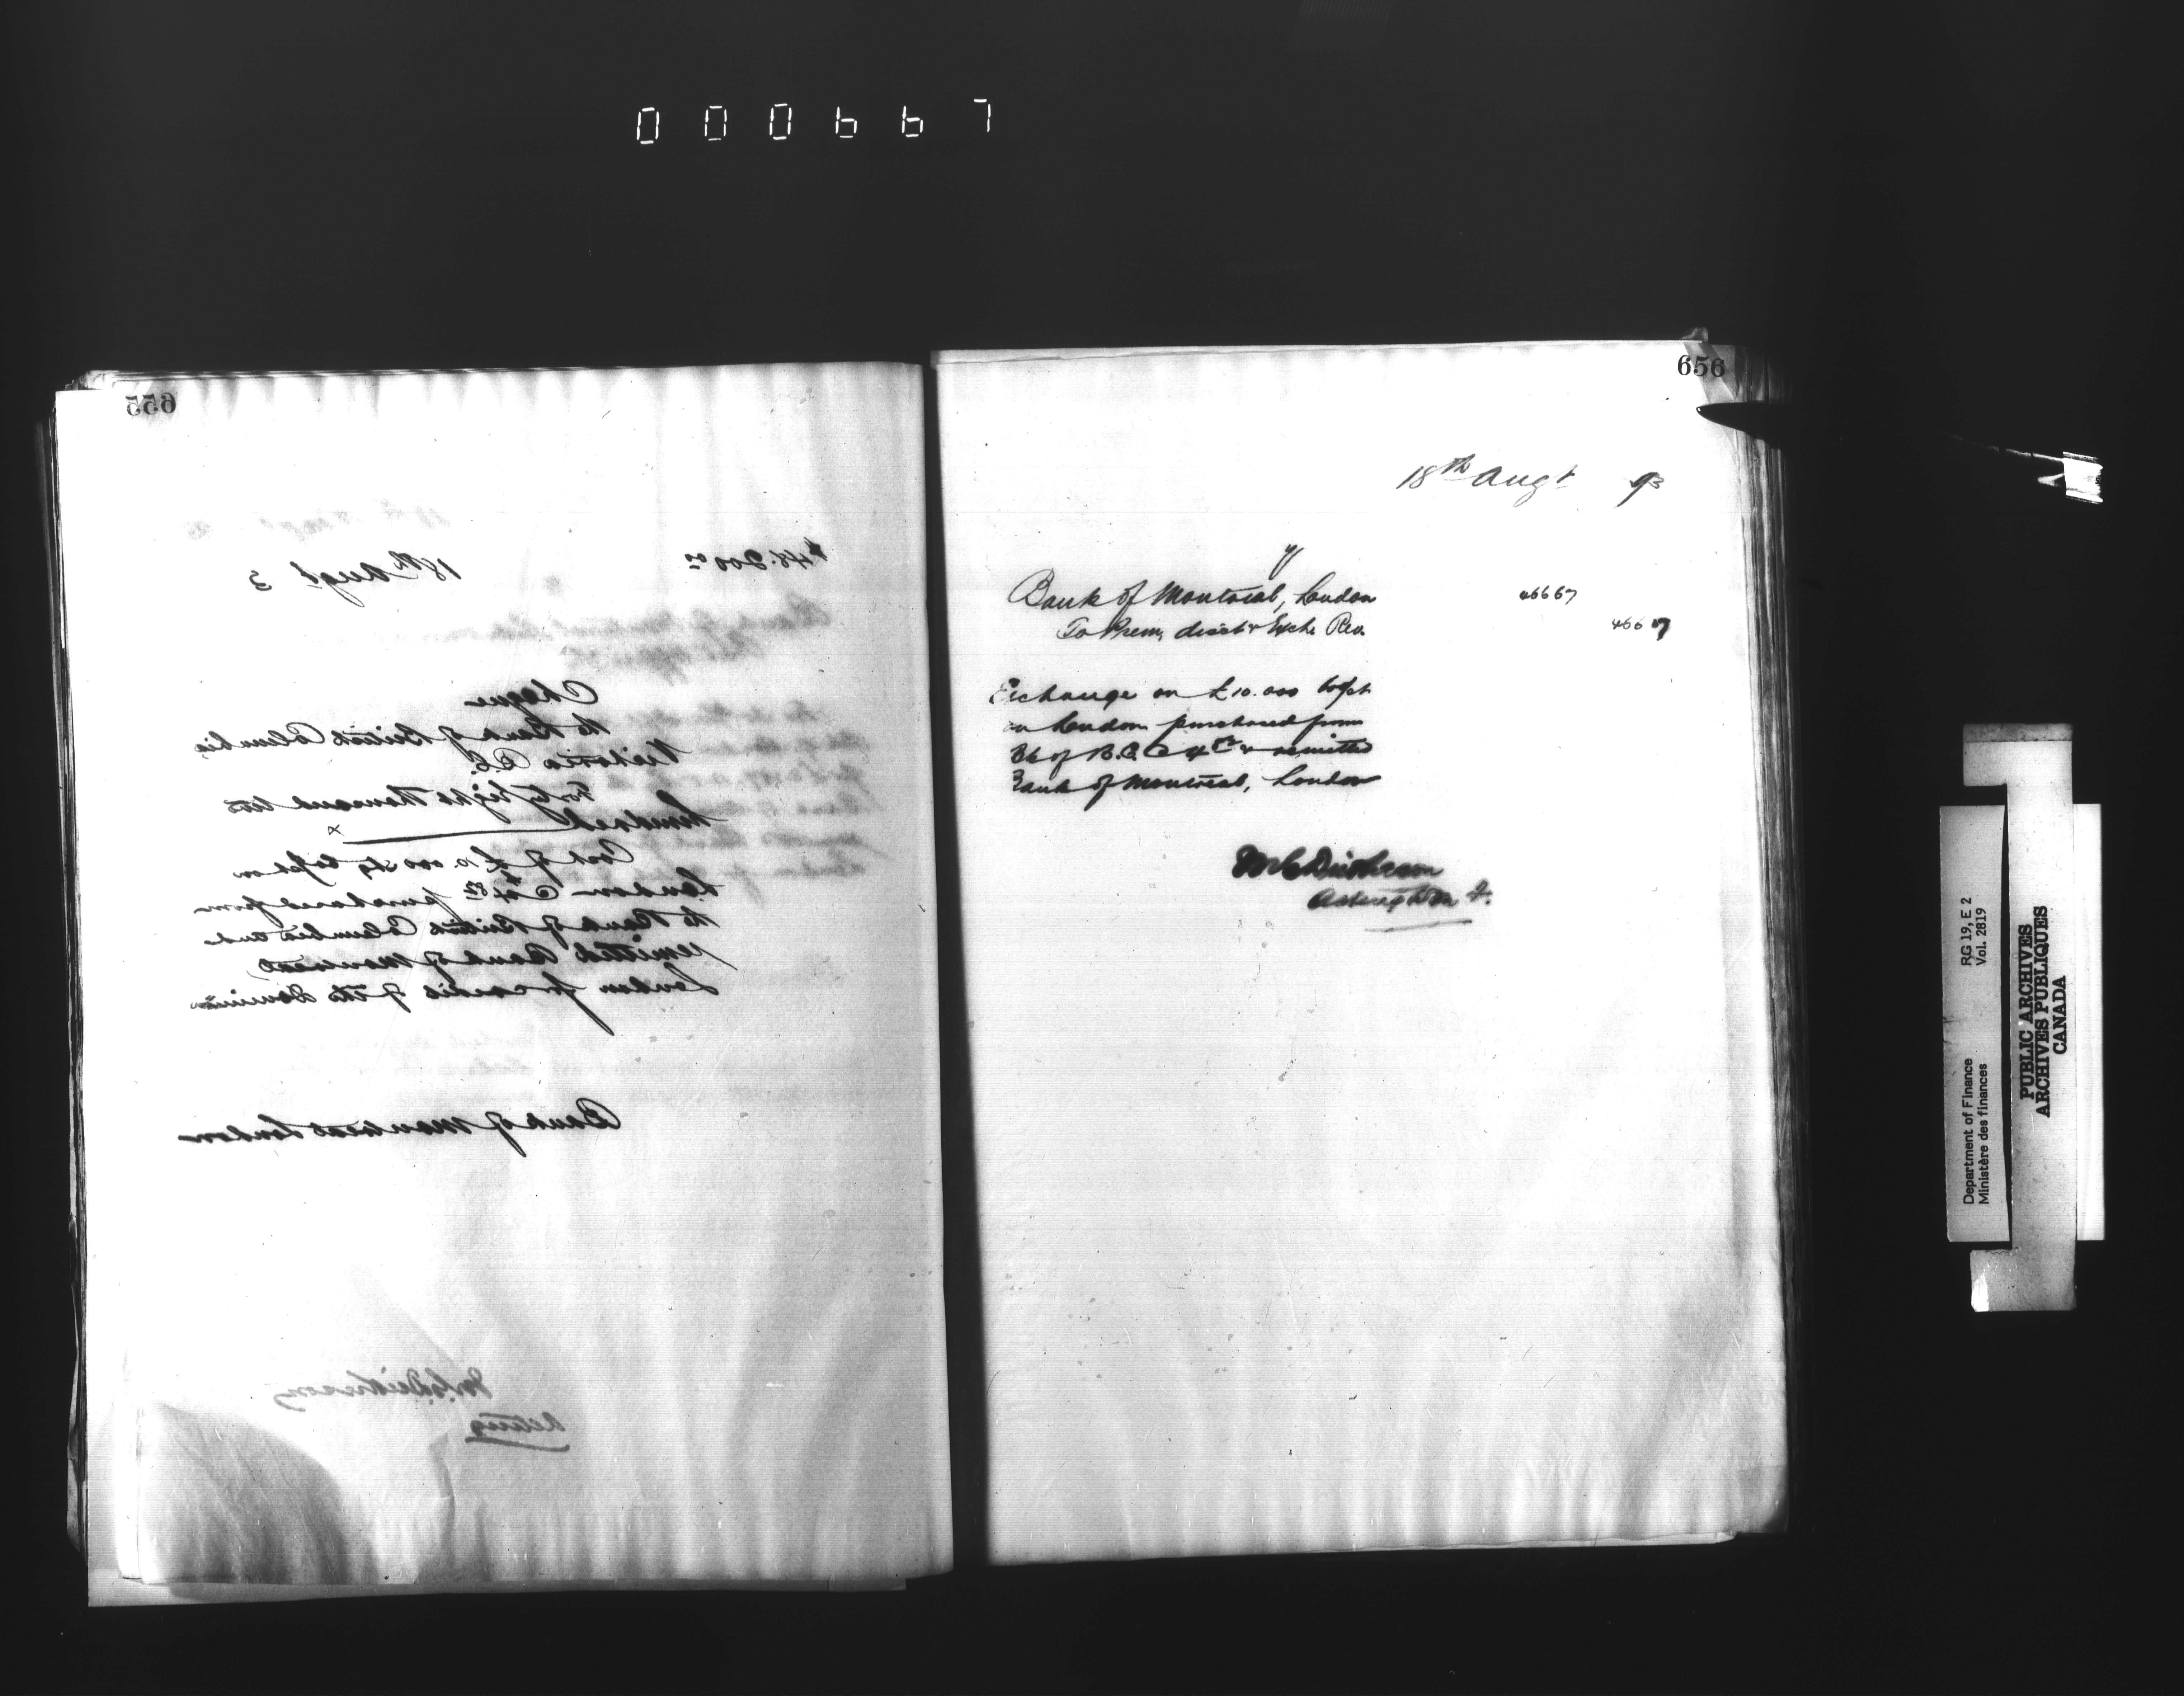 000667
655
$48.200 00
18th Augt 3
Cheque
the Bank of British Columbia
Victoria B.C.
Forty Eight Thousand two
hundred x
Cost of £10.000 Stg 60/st on
London @ 4 82 purchased from
the Bank of British Columbia and
remitted Bank of Montreal
London for credit of the Dominion
Bank of Montreal London
Dickieson
Acting
656
18th Augt 93
Bank of Montreal, London 46667
To Prem, disct & Exche Rev. 46667
Exchange on £10.000
on London purchased from
Bk of B.C. @ 4 82 & remitted
Bank of Montreal, London
Dickieson
Acting
Department of Finance RG 19, E 2
Ministère des finances Vol. 2819
PUBLIC ARCHIVES
ARCHIVES PUBLIQUES
CANADA